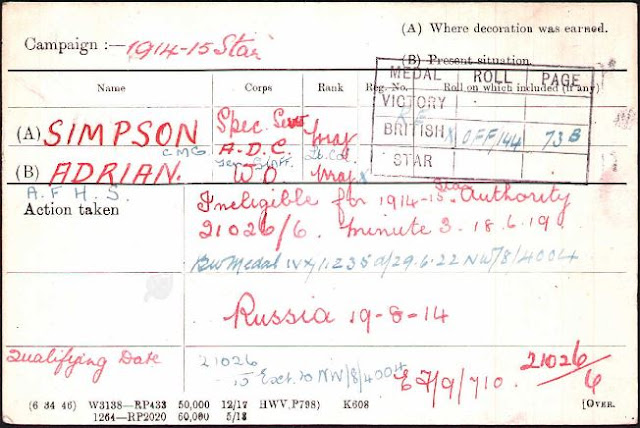 (A) Where decoration was earned.
Campaign :— 1914-15 Star
(B) Present situation.
Name Corps Rank Reg. No. Roll on which included (if any)
MEDAL ROLL PAGE
VICTORY
BRITISH OFF/144 73 B
STAR
(A) SIMPSON Spec. Maj
CMG A.D.C. Lt. Col
(B) ADRIAN. Gen Staff
W O Maj
A. F. H. S.
Action taken
Ineligible for 1914-15 Star. Authority
21026/6. Minute 3. 18.6.19.
BW Medal 29.6.22 NW/8/4004
Russia 19-8-14
Qualifying Date
21026
15 Ext. to NW/8/4004
E 7/9/710. 21026/6
(6 34 46) W3138—RP433 50,000 12/17 HWV,P798) K608 [OVER.
1264—RP2020 60,000 5/18